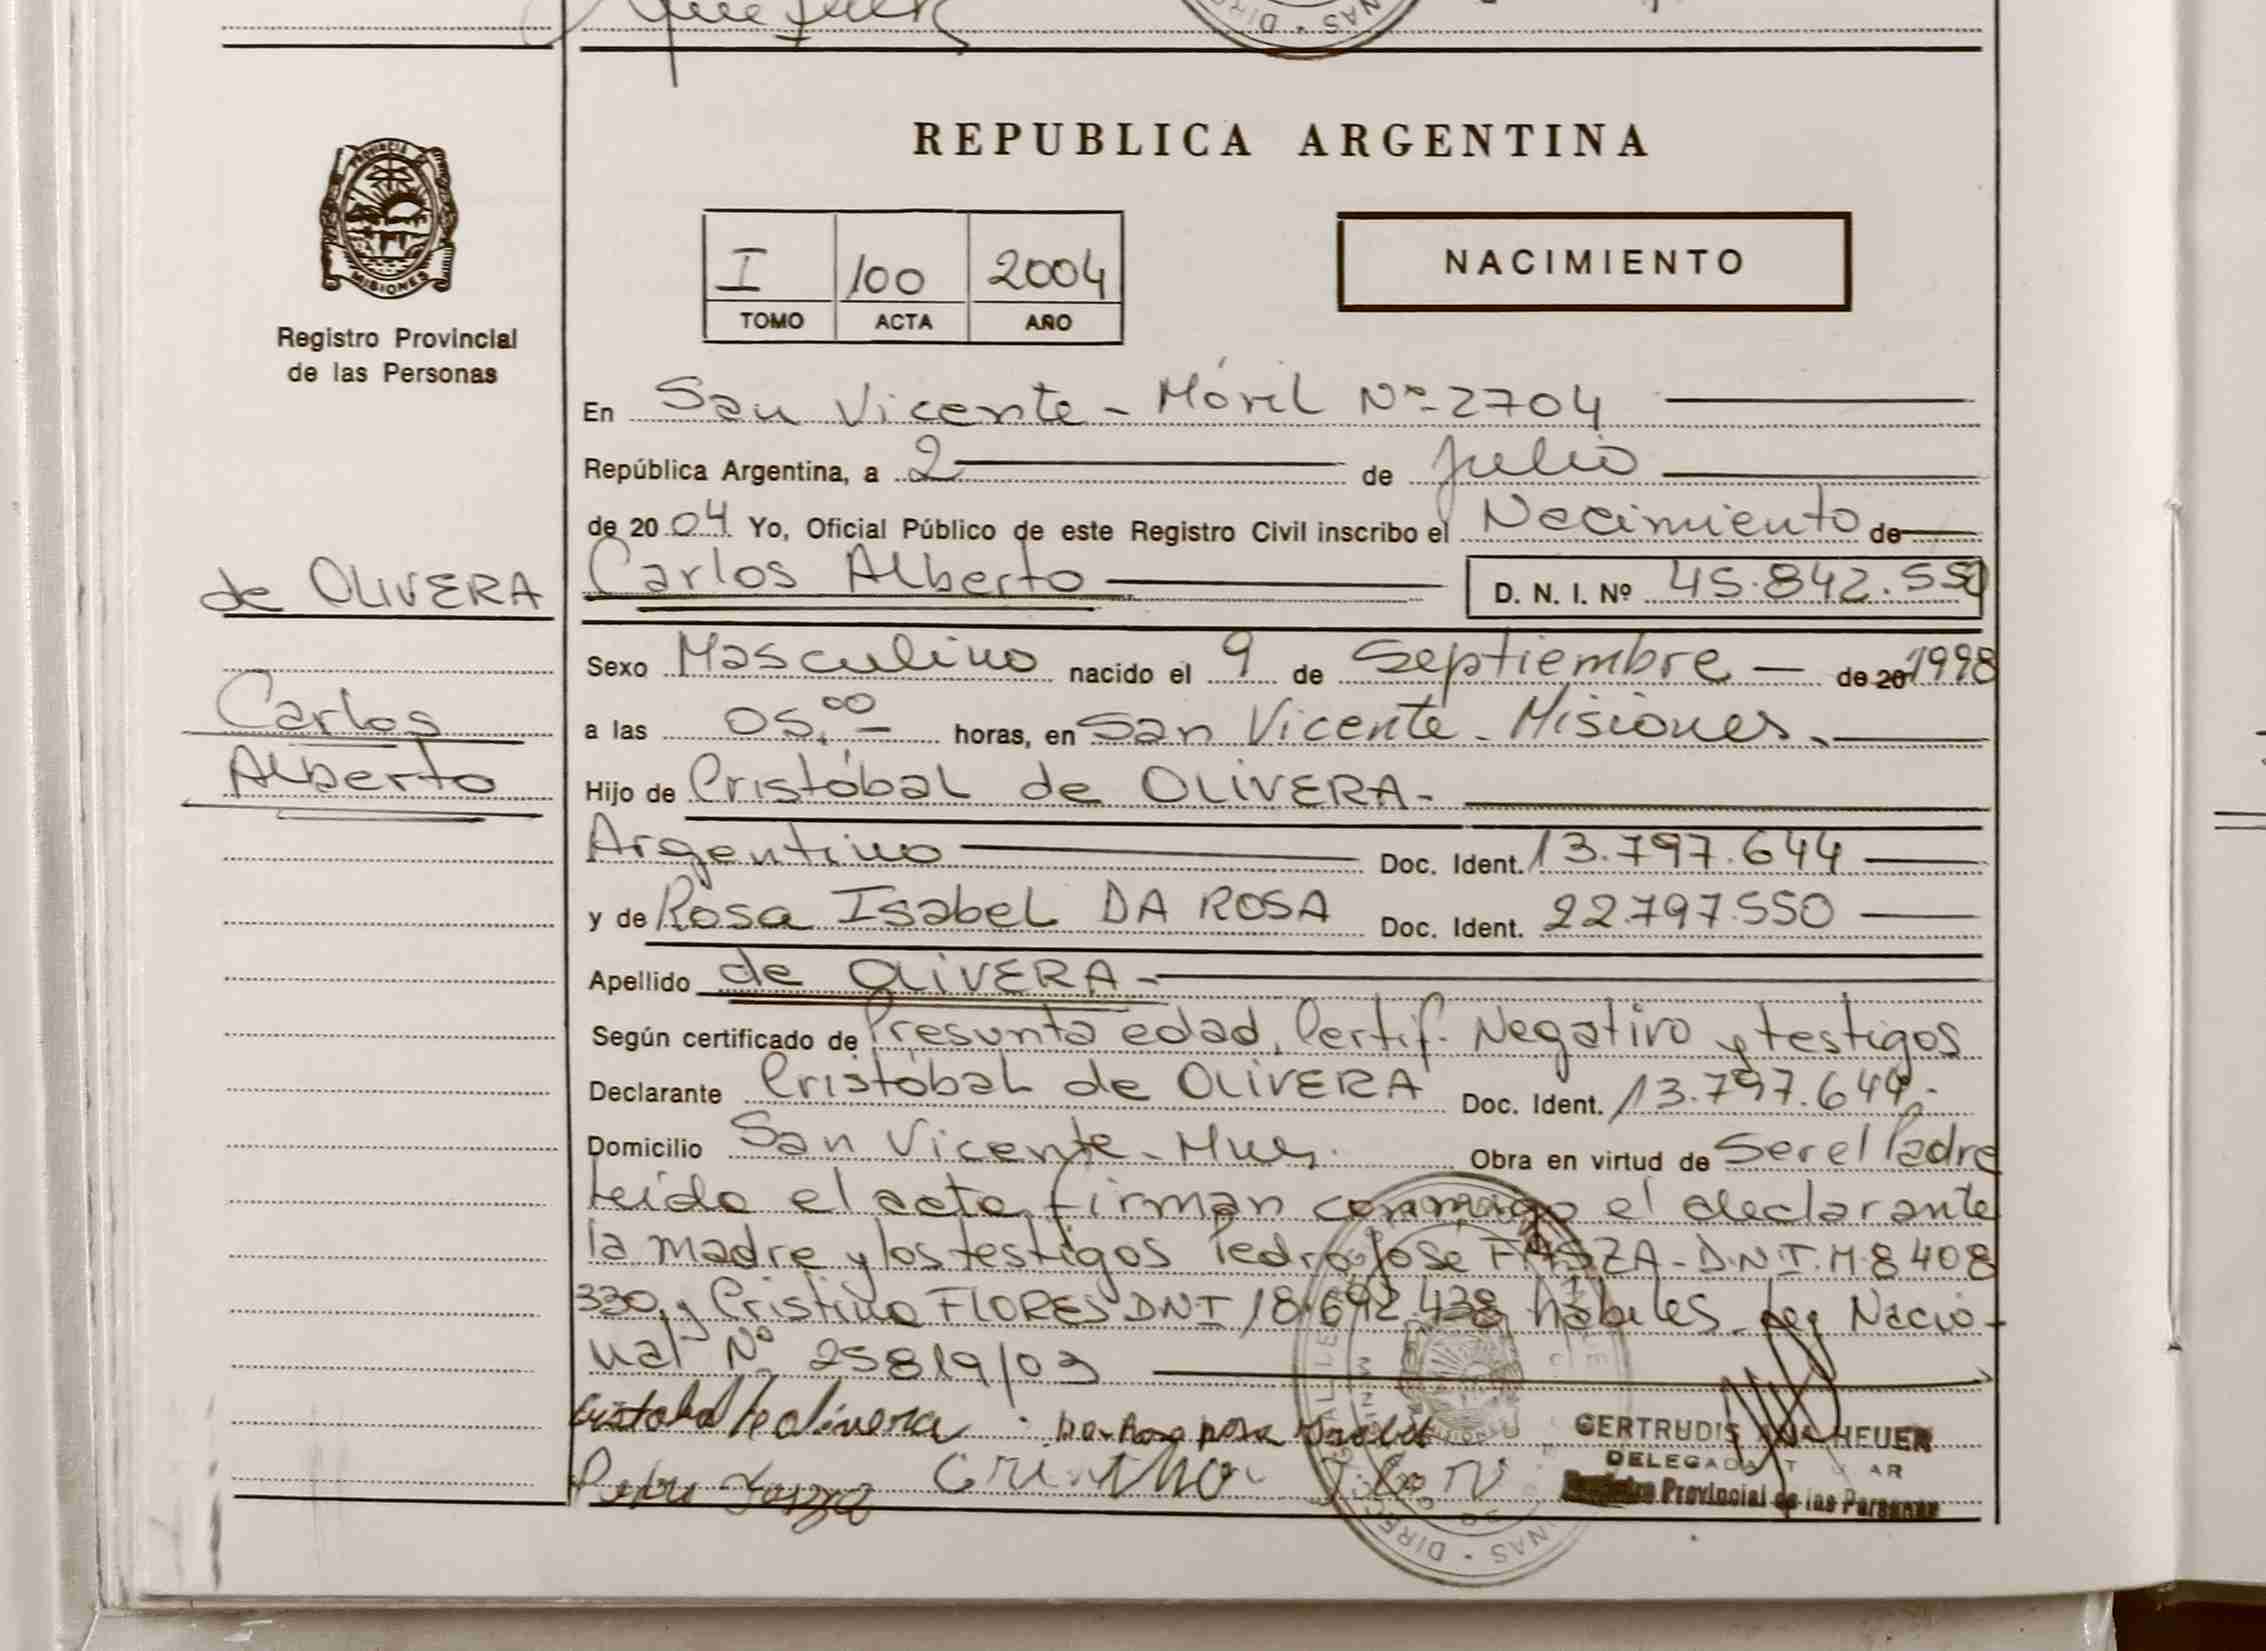 REPUBLICA ARGENTINA
PROVINCIA DE MISIONES
Registro Provincial
de las Personas
I 100 2004
TOMO ACTA AÑO
NACIMIENTO
En San Vicente - Móvil Nº 2704
República Argentina, a 2 de Julio
de 2004 Yo, Oficial Público de este Registro Civil inscribo el Nacimiento de
de OLIVERA
Carlos Alberto D. N. I. Nº 45.842.550
Sexo Masculino nacido el 9 de Septiembre — de 20 1998
Carlos
a las 05,00 horas, en San Vicente - Misiones.
Alberto
Hijo de Cristóbal de OLIVERA-
Argentino Doc. Ident. 13.797.644
y de Rosa Isabel DA ROSA Doc. Ident. 22.797.550
Apellido de OLIVERA-
Según certificado de Presunta edad, Certif. Negativo y testigos
Declarante Cristóbal de OLIVERA Doc. Ident. 13.797.644.-
Domicilio San Vicente - Mnes. Obra en virtud de Ser el Padre
Leída el acta firman conmigo el declarante
la madre y los testigos Pedro Jose - D.N.I. M. 8 408
330 y Cristino FLORES DNI 18.692.438 hábiles. Ley Nacio-
nal Nº 25819/03
Cristobal de olivera Da Rosa rosa Isabel
GERTRUDIS HEUER
DELEGADA
Registro Provincial de las Personas